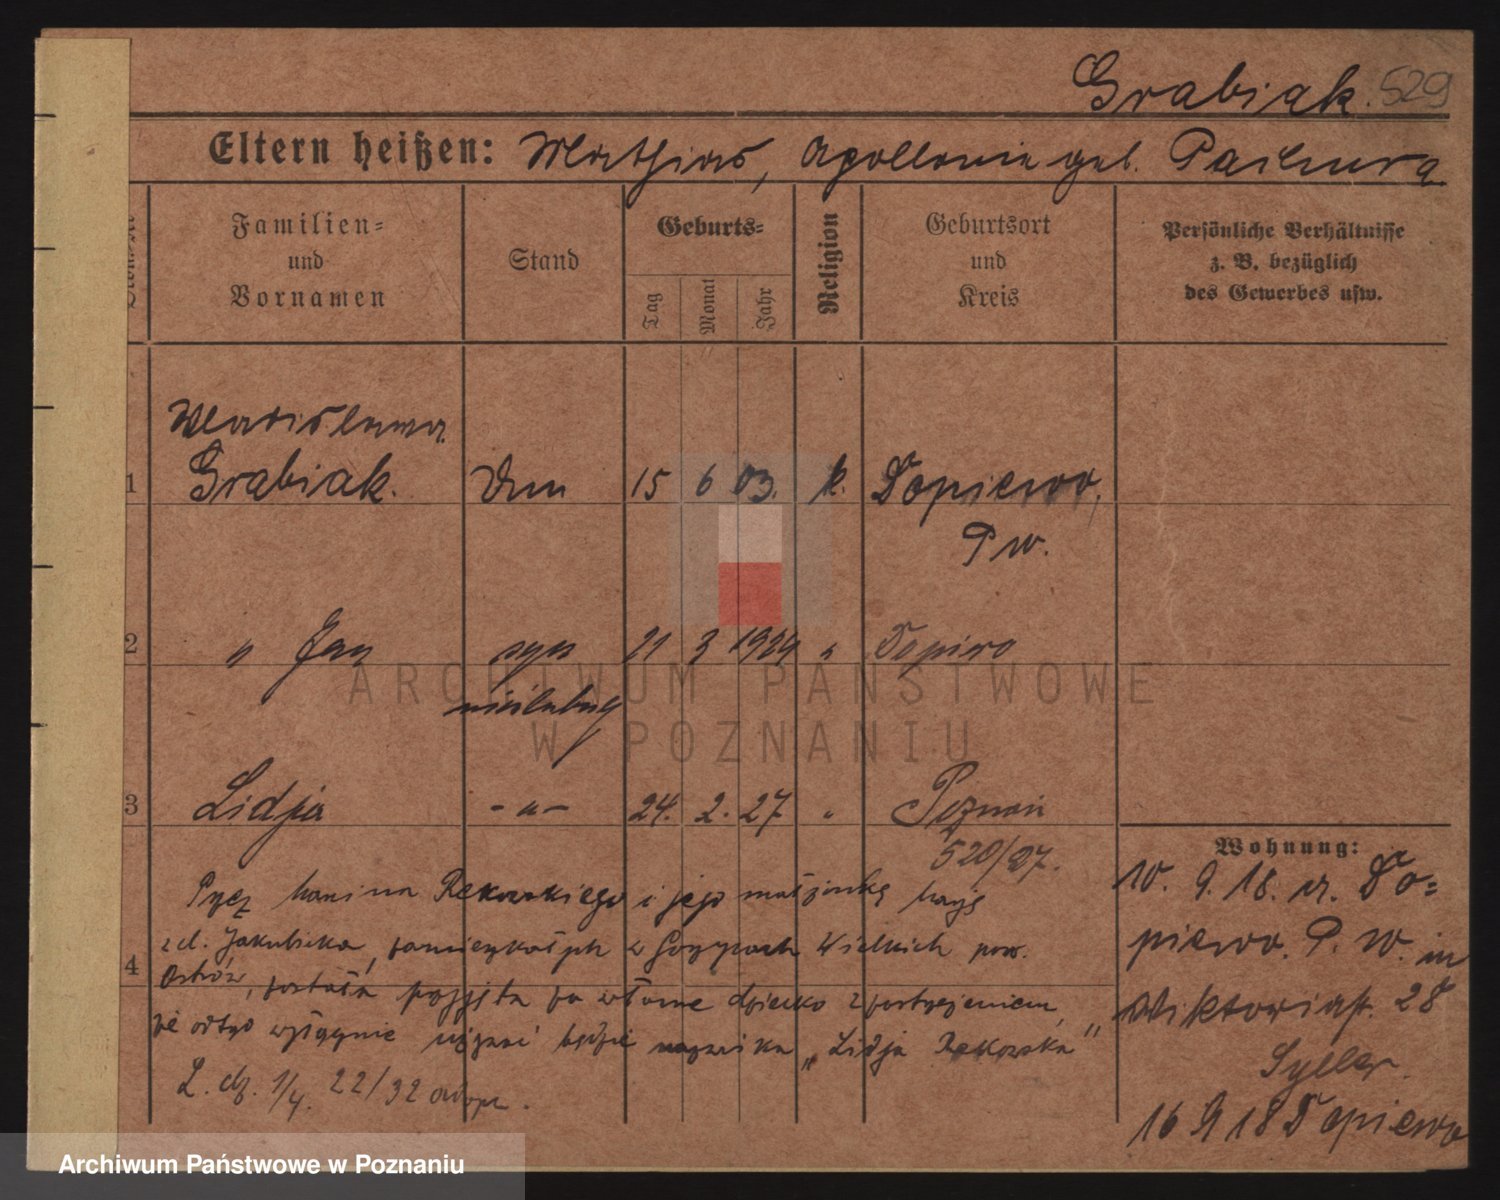 Grabiak. 529
Eltern heißen: Mathias, Apollonia geb. Pachura
Familien=
und
Vornamen
Stand
Geburts=
Tag
Monat
Jahr
Religion
Geburtsort
und
Kreis
Persönliche Verhältnisse
z. B. bezüglich
des Gewerbes usw.
Wladislawa
1 Grabiak. 15 6 03. k. Dopiewo,
P. W.
2 " Jan syn 21 3 1924 " Dopiewo
nieślubny
3 Lidja - " - 24. 2. 27 " Poznań
520/27.
Wohnung:
Przez Rękowskiego i jego małżonkę
zd. Jakubicka, zamieszkałych w Gorzycach Wielkich pow.
4
Ostrów, została przyjęta za własne dziecko z zastrzeżeniem,
że odtąd wyłącznie używać będzie nazwiska „Lidja Rękowska"
L. dz. 1/4. 22/32 adopt.
10. 9. 18. v. Do=
piewo. P. W. in
Wiktoriastr. 28
16 9 18 Dopiewo
ARCHIWUM PAŃSTWOWE
W POZNANIU
Archiwum Państwowe w Poznaniu